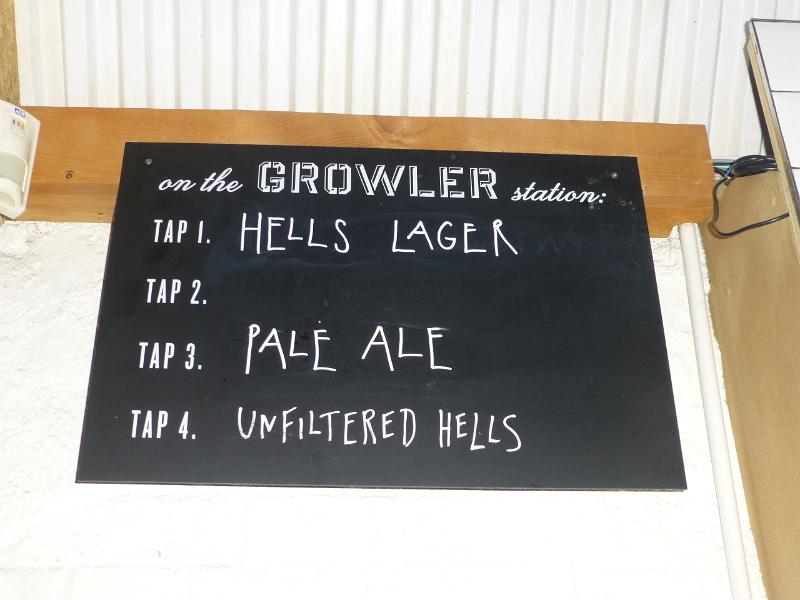 on the GROWLER station:
TAP 1. HELLS LAGER
TAP 2.
TAP 3. PALE ALE
TAP 4. UNFILTERED HELLS